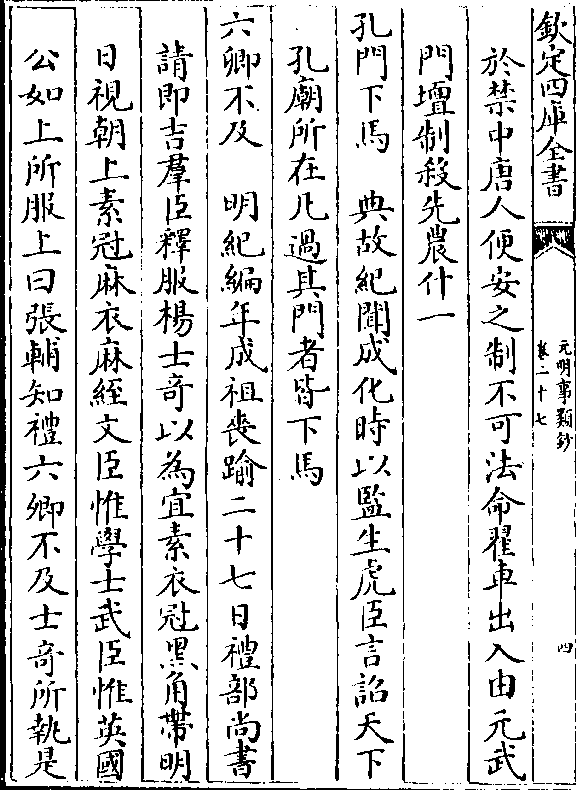 欽定四庫全書
元明事類鈔
卷二十七
四
於禁中唐人便安之制不可法命翟車出入由元武
門壇制殺先農什一
孔門下馬　典故紀聞成化時以監生虎臣言詔天下
孔廟所在凡過其門者皆下馬
六卿不及　明紀編年成祖喪踰二十七日禮部尚書
請即吉羣臣釋服楊士奇以為宜素衣冠黑角帶明
日視朝上素冠麻衣麻絰文臣惟學士武臣惟英國
公如上所服上曰張輔知禮六卿不及士奇所執是